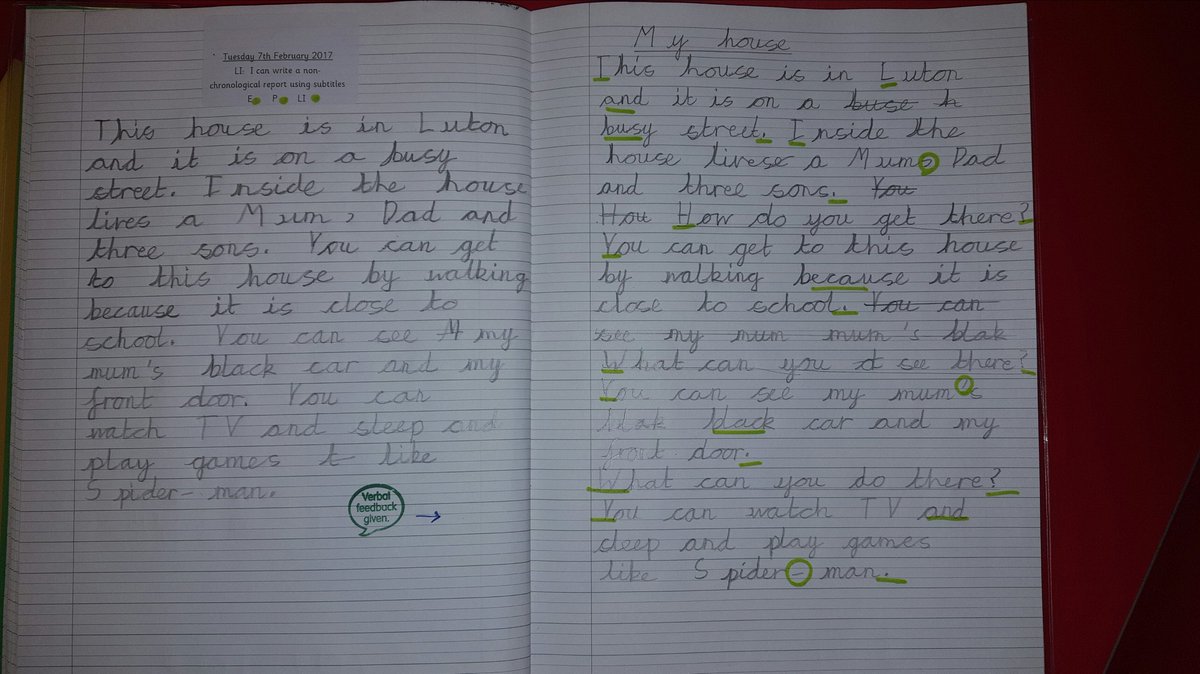 Tuesday 7th February 2017
LI: I can write a non-
chronological report using subtitles
E P LI
This house is in Luton
and it is on a busy
street. Inside the house
lives a Mum, Dad and
three sons. You can get
to this house by walking
because it is close to
school. You can see M my
mum's black car and my
front door. You can
watch TV and sleep and
play games t like
Spider-man.
Verbal
feedback
given.
My house
This house is in Luton
and it is on a buse h
busy street. Inside the
house livese a Mum, Dad
and three sons. You
Hou How do you get there?
You can get to this house
by walking because it is
close to school. You can
see my mum mum's blak
What can you st see there?
You can see my mum's
blak black car and my
front door.
What can you do there?
You can watch TV and
sleep and play games
like Spider-man.